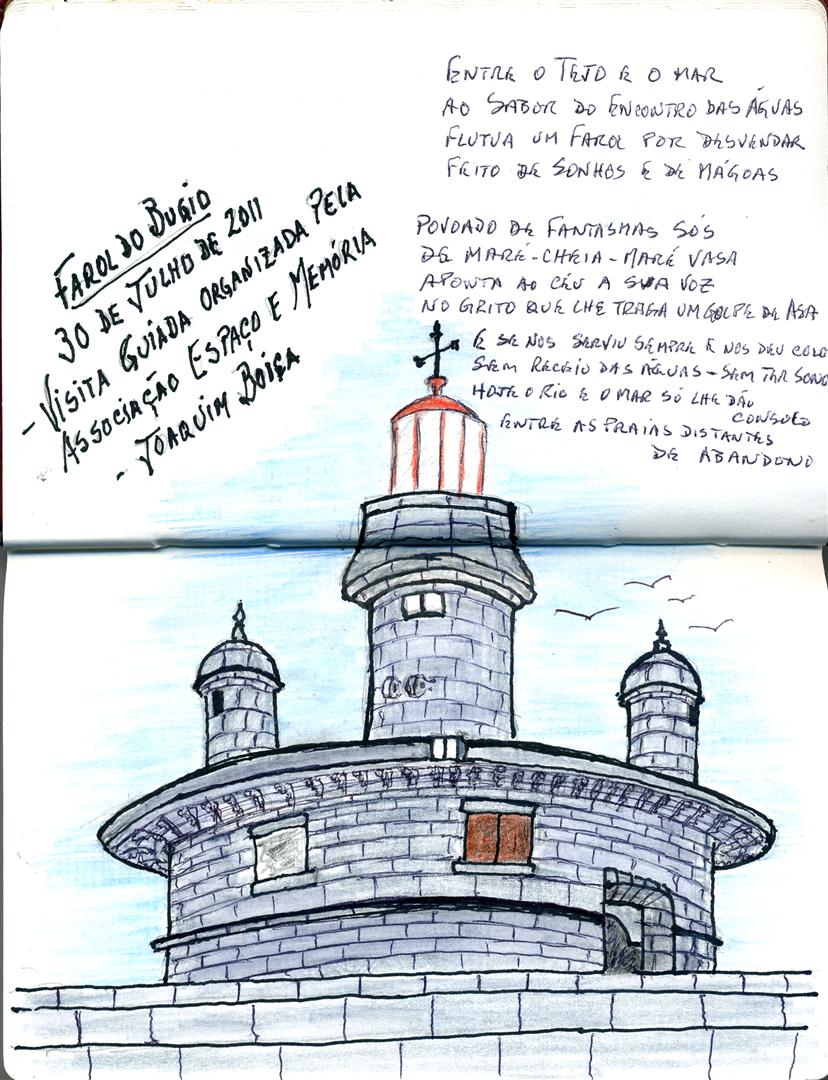 FAROL DO BUGIO
30 DE JULHO DE 2011
- VISITA GUIADA ORGANIZADA PELA
ASSOCIAÇÃO ESPAÇO E MEMÓRIA
- JOAQUIM BOIÇA
ENTRE O TEJO E O MAR
AO SABOR DO ENCONTRO DAS ÁGUAS
FLUTUA UM FAROL POR DESVENDAR
FEITO DE SONHOS E DE MÁGOAS
POVOADO DE FANTASMAS SÓS
DE MARÉ-CHEIA-MARÉ VASA
APONTA AO CÉU A SUA VOZ
NO GRITO QUE LHE TRAGA UM GOLPE DE ASA
E SE NOS SERVIU SEMPRE E NOS DEU COLO
SEM RECEIO DAS ÁGUAS - SEM TER SONO
HOJE O RIO E O MAR SÓ LHE DÃO
CONSOLO
ENTRE AS PRAIAS DISTANTES
DE ABANDONO